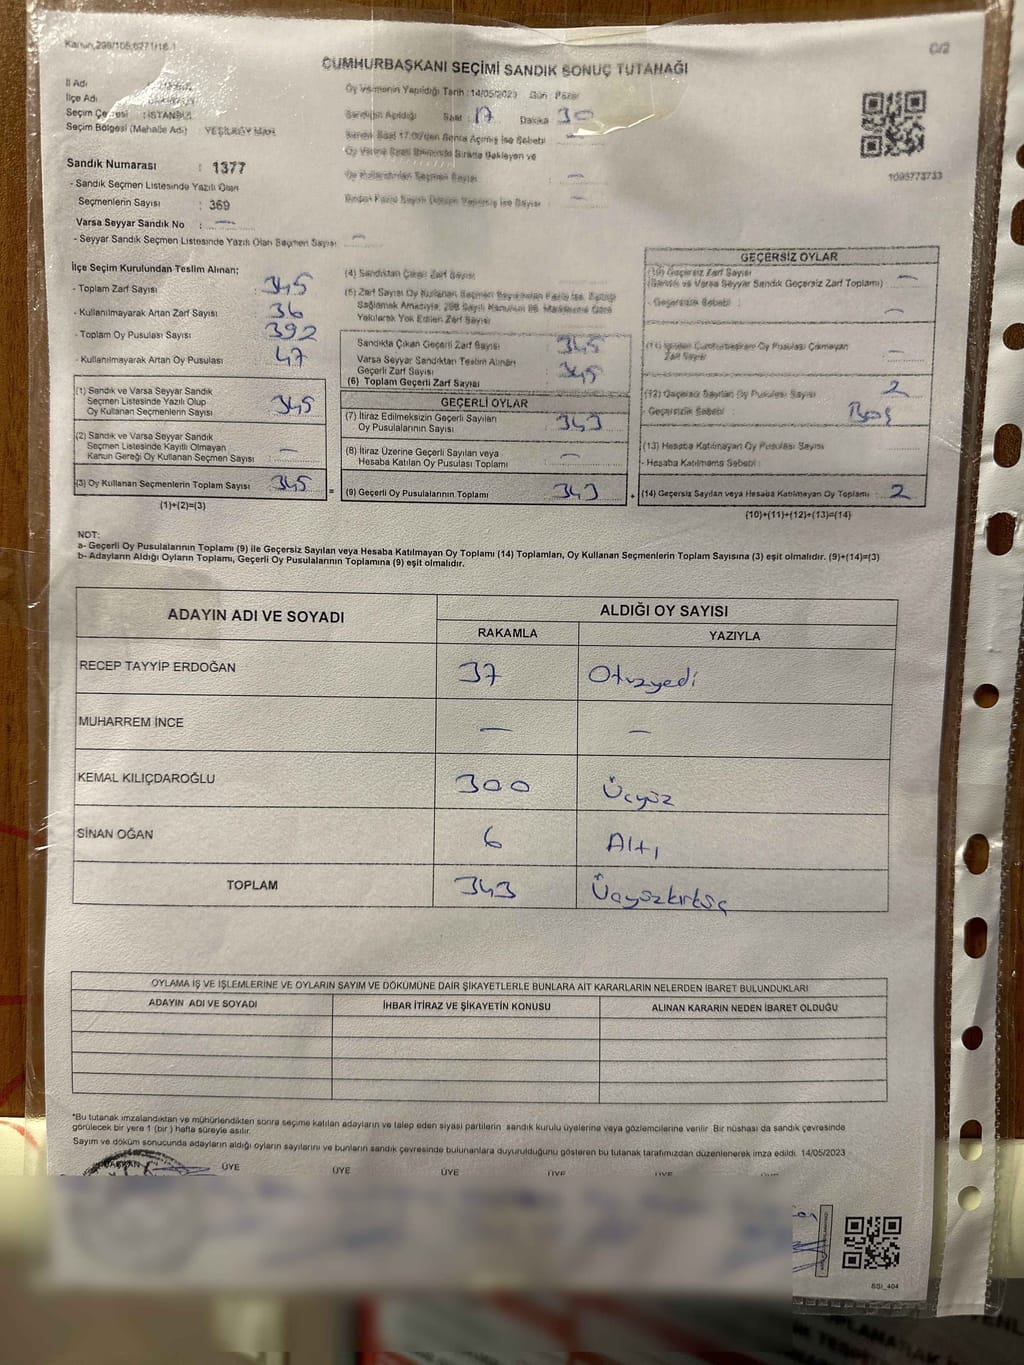 Kanun,298/105,6271/16.1
C/2
CUMHURBAŞKANI SEÇİMİ SANDIK SONUÇ TUTANAĞI
İl Adı
İlçe Adı
Seçim Çevresi : İSTANBUL
Seçim Bölgesi (Mahalle Adı) YEŞİLKÖY MAH.
Oy Vermenin Yapıldığı Tarih : 14/05/2023 Gün Pazar
Sandığın Açıldığı Saat : 17 Dakika 30
1095773733
Sandık Numarası : 1377
- Sandık Seçmen Listesinde Yazılı Olan
Seçmenlerin Sayısı : 369
Varsa Seyyar Sandık No : —
- Seyyar Sandık Seçmen Listesinde Yazılı Olan Seçmen Sayısı : —
Oy Kullandırılan Seçmen Sayısı : —
İlçe Seçim Kurulundan Teslim Alınan;
- Toplam Zarf Sayısı : 345
- Kullanılmayarak Artan Zarf Sayısı : 36
- Toplam Oy Pusulası Sayısı : 392
- Kullanılmayarak Artan Oy Pusulası : 47
(1) Sandık ve Varsa Seyyar Sandık
Seçmen Listesinde Yazılı Olup
Oy Kullanan Seçmenlerin Sayısı : 345
(2) Sandık ve Varsa Seyyar Sandık
Seçmen Listesinde Kayıtlı Olmayan
Kanun Gereği Oy Kullanan Seçmen Sayısı : —
(3) Oy Kullanan Seçmenlerin Toplam Sayısı : 345
(1)+(2)=(3)
(4) Sandıktan Çıkan Zarf Sayısı
(5) Zarf Sayısı Oy Kullanan Seçmen Sayısından Fazla İse, Eşitliği
Sağlamak Amacıyla, 298 Sayılı Kanunun 98. Maddesine Göre
Yakılarak Yok Edilen Zarf Sayısı
Sandıkta Çıkan Geçerli Zarf Sayısı : 345
Varsa Seyyar Sandıktan Teslim Alınan
Geçerli Zarf Sayısı : 345
(6) Toplam Geçerli Zarf Sayısı
GEÇERLİ OYLAR
(7) İtiraz Edilmeksizin Geçerli Sayılan
Oy Pusulalarının Sayısı : 343
(8) İtiraz Üzerine Geçerli Sayılan veya
Hesaba Katılan Oy Pusulası Toplamı : —
= (9) Geçerli Oy Pusulalarının Toplamı : 343
GEÇERSİZ OYLAR
(10) Geçersiz Zarf Sayısı —
(Sandık ve Varsa Seyyar Sandık Geçersiz Zarf Toplamı)
- Geçersizlik Sebebi : —
Zarf Sayısı —
(12) Geçersiz Sayılan Oy Pusulası Sayısı : 2
- Geçersizlik Sebebi Boş
(13) Hesaba Katılmayan Oy Pusulası Sayısı
- Hesaba Katılmama Sebebi :
+ (14) Geçersiz Sayılan veya Hesaba Katılmayan Oy Toplamı : 2
(10)+(11)+(12)+(13)=(14)
NOT:
a- Geçerli Oy Pusulalarının Toplamı (9) ile Geçersiz Sayılan veya Hesaba Katılmayan Oy Toplamı (14) Toplamları, Oy Kullanan Seçmenlerin Toplam Sayısına (3) eşit olmalıdır. (9)+(14)=(3)
b- Adayların Aldığı Oyların Toplamı, Geçerli Oy Pusulalarının Toplamına (9) eşit olmalıdır.
ADAYIN ADI VE SOYADI
ALDIĞI OY SAYISI
RAKAMLA YAZIYLA
RECEP TAYYİP ERDOĞAN 37 Otuzyedi
MUHARREM İNCE — —
KEMAL KILIÇDAROĞLU 300 Üçyüz
SİNAN OĞAN 6 Altı
TOPLAM 343 Üçyüzkırküç
OYLAMA İŞ VE İŞLEMLERİNE VE OYLARIN SAYIM VE DÖKÜMÜNE DAİR ŞİKAYETLERLE BUNLARA AİT KARARLARIN NELERDEN İBARET BULUNDUKLARI
ADAYIN ADI VE SOYADI İHBAR İTİRAZ VE ŞİKAYETİN KONUSU ALINAN KARARIN NEDEN İBARET OLDUĞU
*Bu tutanak imzalandıktan ve mühürlendikten sonra seçime katılan adayların ve talep eden siyasi partilerin sandık kurulu üyelerine veya gözlemcilerine verilir Bir nüshası da sandık çevresinde
görülecek bir yere 1 (bir) hafta süreyle asılır.
Sayım ve döküm sonucunda adayların aldığı oyların sayılarını ve bunların sandık çevresinde bulunanlara duyurulduğunu gösteren bu tutanak tarafımızdan düzenlenerek imza edildi. 14/05/2023
BAŞKAN ÜYE ÜYE ÜYE ÜYE ÜYE ÜYE
SSI_404